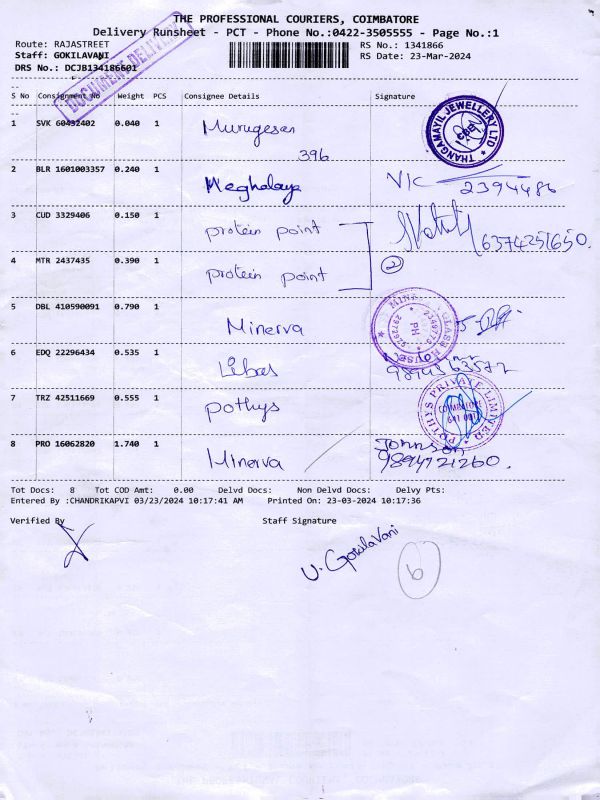 THE PROFESSIONAL COURIERS, COIMBATORE
Delivery Runsheet - PCT - Phone No.:0422-3505555 - Page No.:1
Route: RAJASTREET
RS No.: 1341866
Staff: GOKILAVANI
RS Date: 23-Mar-2024
DRS No.: DCJB134186601
DOCUMENT DELIVERY
S No Consignment No Weight PCS Consignee Details Signature
1 SVK 60432402 0.040 1 Murugesan
396
THANGAMAYIL JEWELLERY LTD
CBE
2 BLR 1601003357 0.240 1 Meghalaya
2394486
3 CUD 3329406 0.150 1 protein point
6374251650.
4 MTR 2437435 0.390 1 protein point
2
5 DBL 410590091 0.790 1 Minerva
PH
6 EDQ 22296434 0.535 1 Libas
7 TRZ 42511669 0.555 1 pothys
POTHYS PRIVATE LIMITED
COIMBATORE
641 001
8 PRO 16062820 1.740 1 Minerva
Johnson
9894721260.
Tot Docs: 8 Tot COD Amt: 0.00 Delvd Docs: Non Delvd Docs: Delvy Pts:
Entered By :CHANDRIKAPVI 03/23/2024 10:17:41 AM Printed On: 23-03-2024 10:17:36
Verified By Staff Signature
U. Gokilavani
6